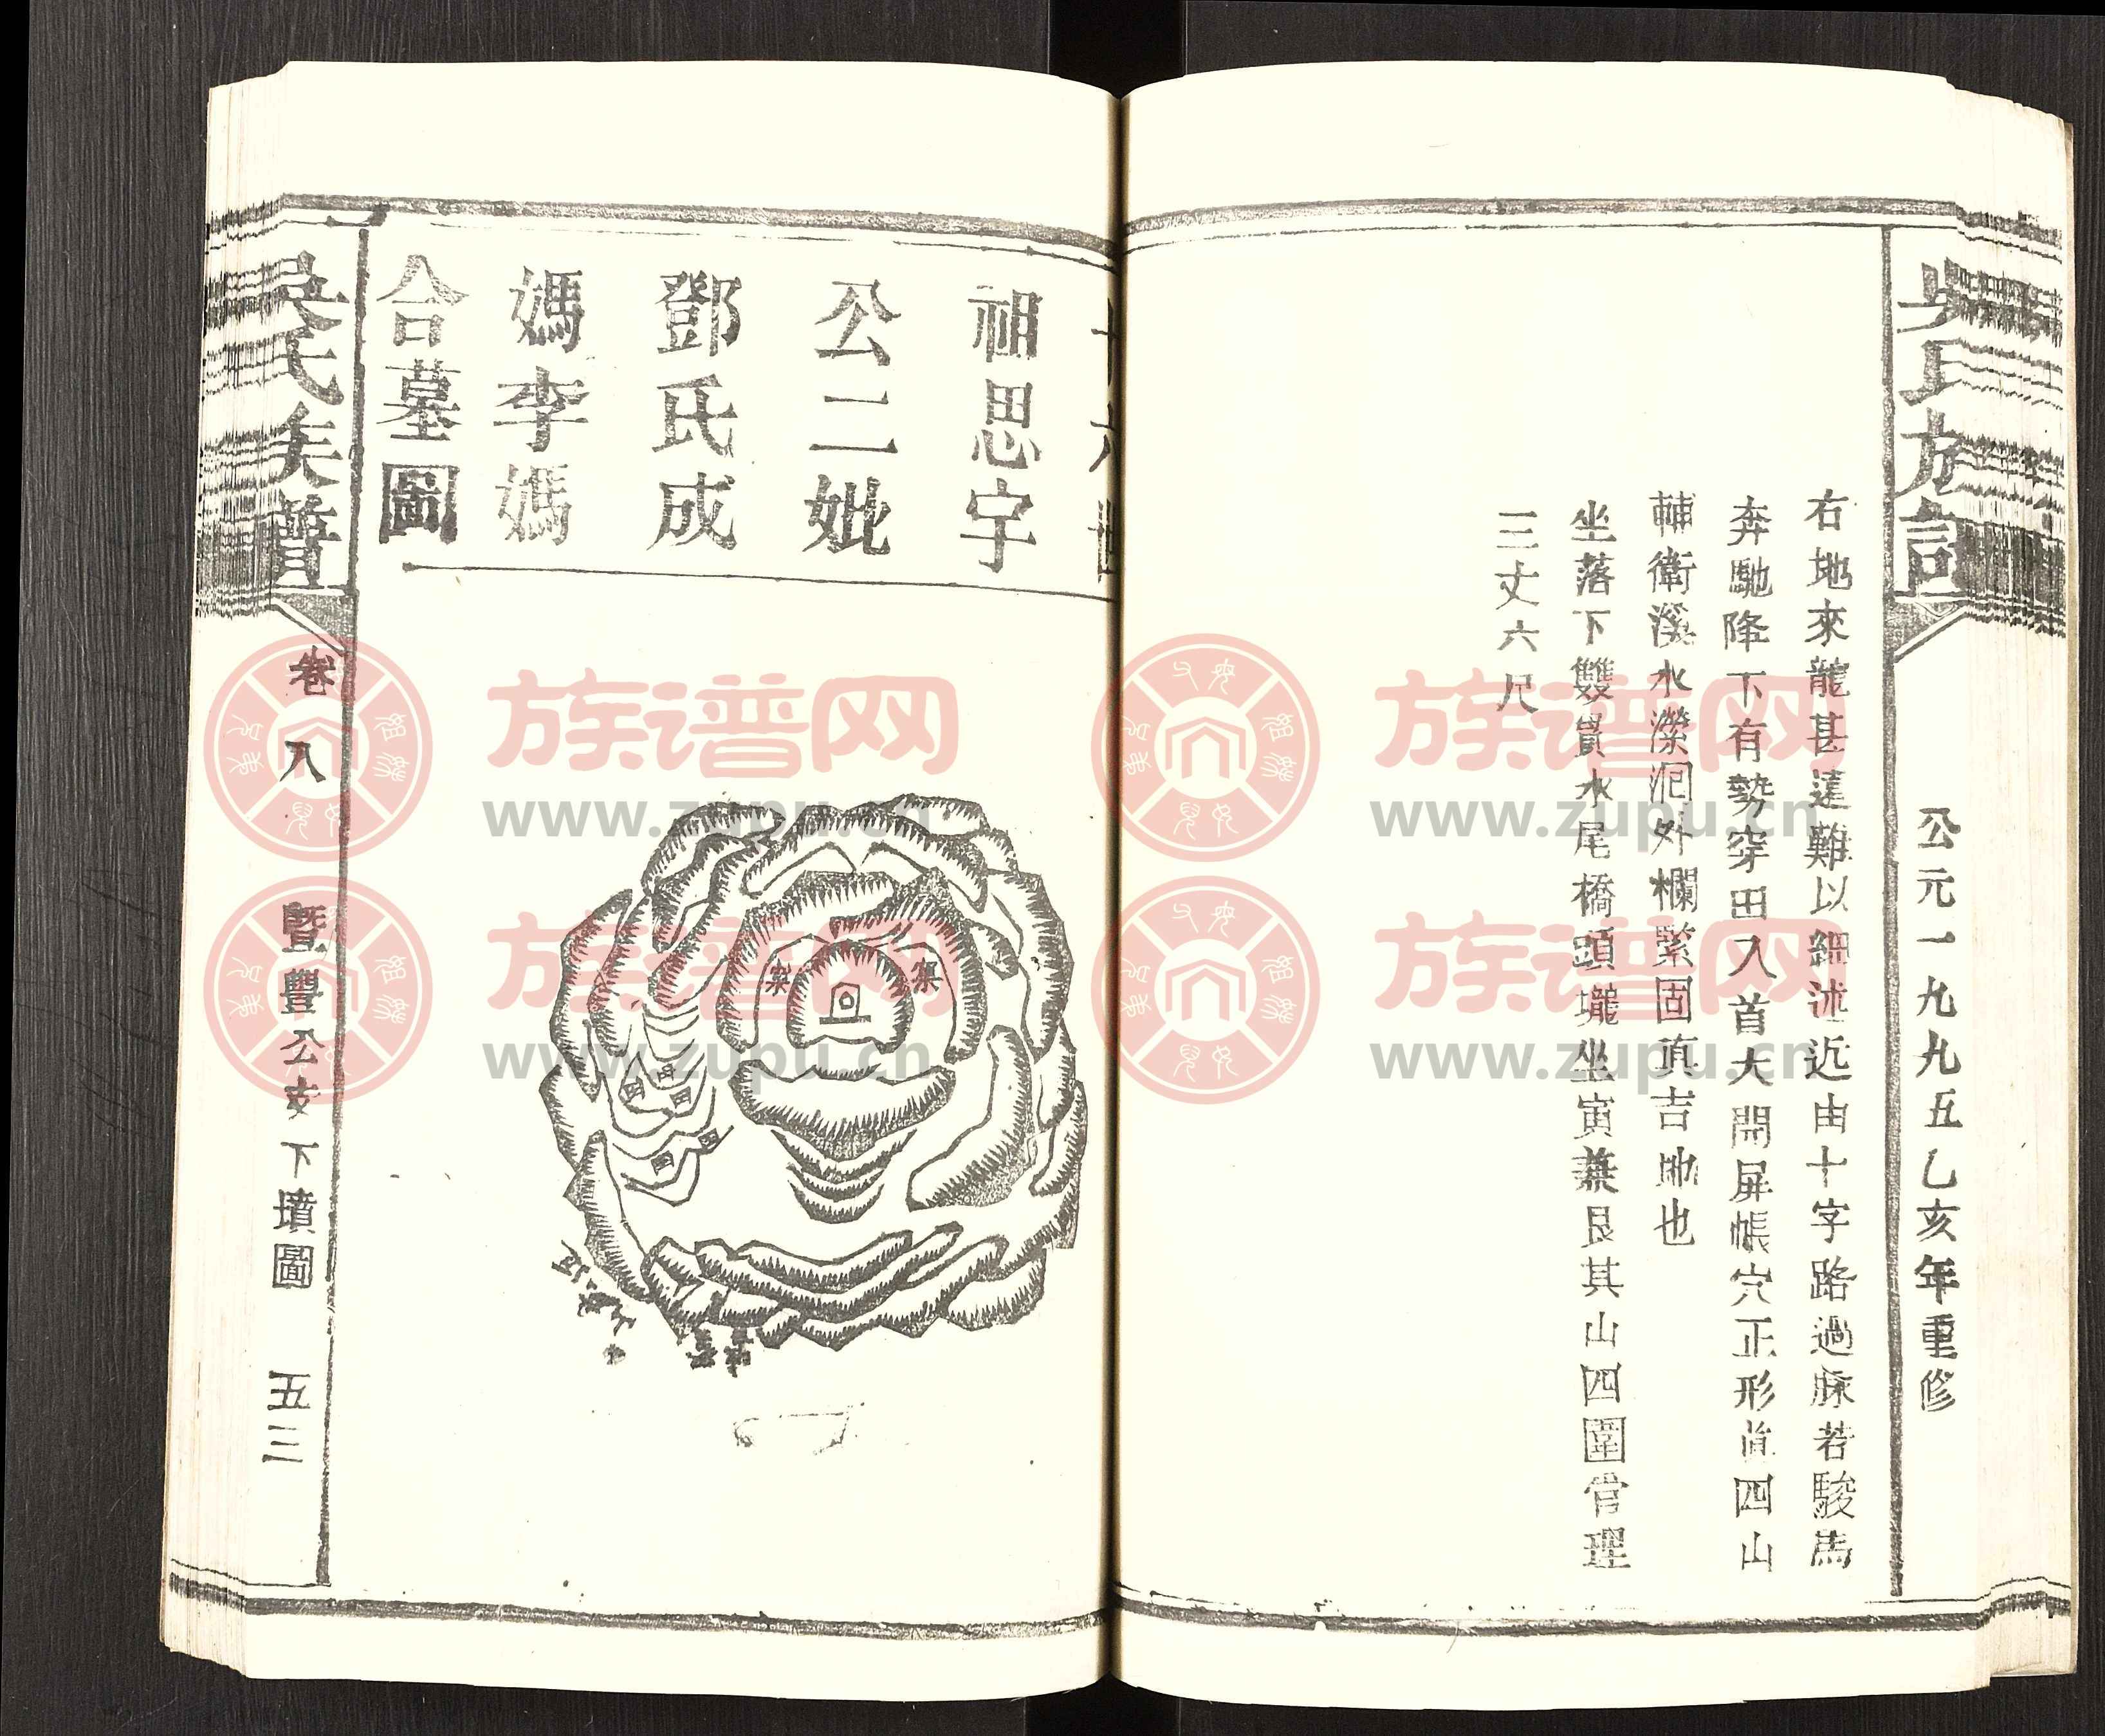 吳氏族譜
公元一九九五乙亥年重修
右地來龍甚遠難以細述近由十字路過脉若駿馬
奔馳降下有勢穿田入首大開屏帳穴正形真四山
輔衛溪水瀠洄外欄緊固真吉地也
坐落下雙貴水尾橋頭壠坐寅兼艮其山四圍管理
三丈六尺
祖思宇
公二妣
鄧氏成
媽李媽
合墓圖
案
案
田
田
田
田
田
吳氏族譜
卷八
暨豐公支下墳圖
五三
族谱网
www.zupu.cn
族谱网
www.zupu.cn
族谱网
www.zupu.cn
族谱网
www.zupu.cn